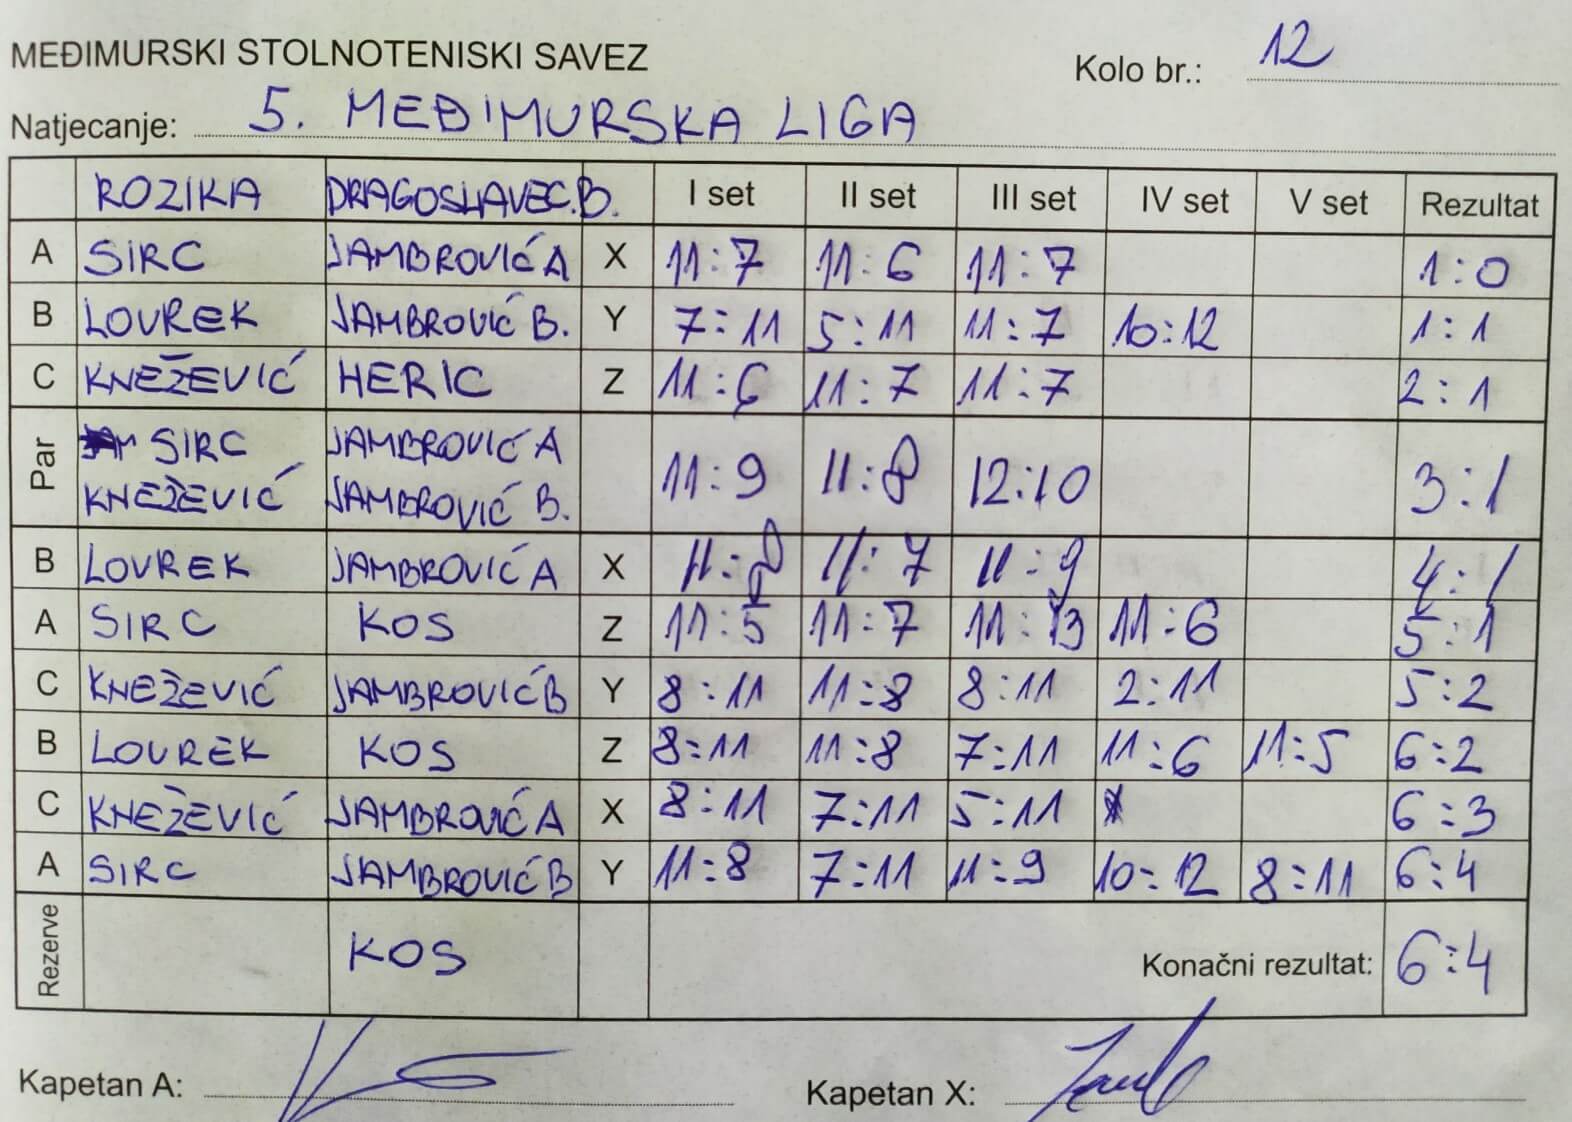 MEĐIMURSKI STOLNOTENISKI SAVEZ Kolo br.: 12
Natjecanje: 5. MEĐIMURSKA LIGA
ROZIKA DRAGOSLAVEC.B. I set II set III set IV set V set Rezultat
A SIRC JAMBROVIĆ A X 11:7 11:6 11:7 1:0
B LOVREK JAMBROVIĆ B. Y 7:11 5:11 11:7 10:12 1:1
C KNEŽEVIĆ HERIC Z 11:6 11:7 11:7 2:1
Par SIRC JAMBROVIĆ A 11:9 11:8 12:10 3:1
KNEŽEVIĆ JAMBROVIĆ B.
B LOVREK JAMBROVIĆ A X 11:8 11:7 11:9 4:1
A SIRC KOS Z 11:5 11:7 11:13 11:6 5:1
C KNEŽEVIĆ JAMBROVIĆ B Y 8:11 11:8 8:11 2:11 5:2
B LOVREK KOS Z 8:11 11:8 7:11 11:6 11:5 6:2
C KNEŽEVIĆ JAMBROVIĆ A X 8:11 7:11 5:11 6:3
A SIRC JAMBROVIĆ B Y 11:8 7:11 11:9 10:12 8:11 6:4
Rezerve KOS Konačni rezultat: 6:4
Kapetan A: Kapetan X: